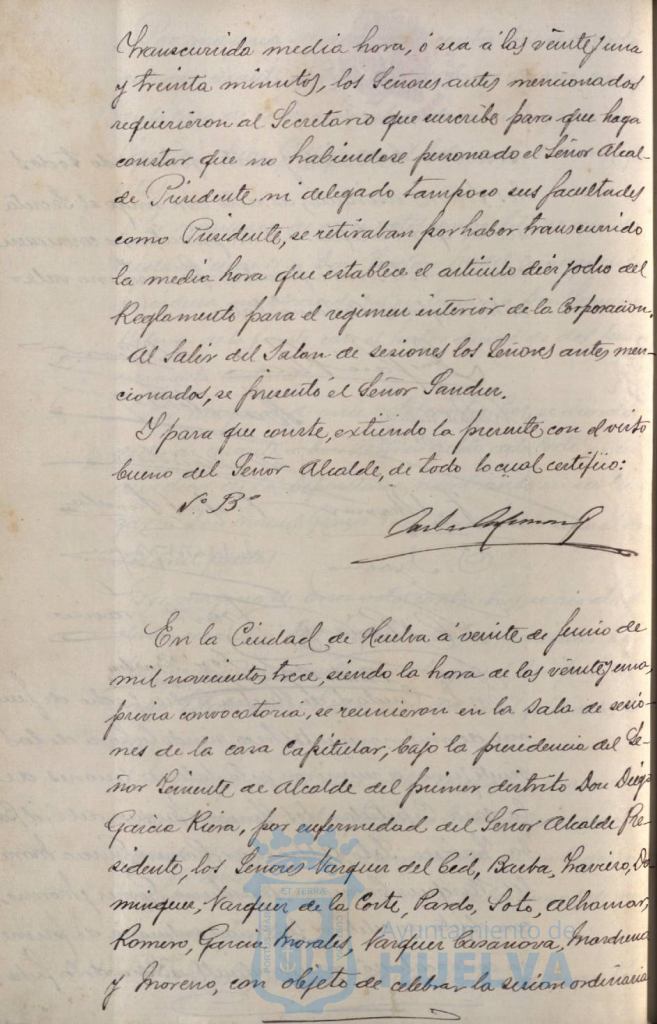 Transcurrida media hora, ó sea á las veinte y una
y treinta minutos, los Señores antes mencionados
requirieron al Secretario que suscribe para que haga
constar que no habiendose personado el Señor Alcal-
de Presidente ni delegado tampoco sus facultades
como Presidente, se retiraban por haber transcurrido
la media hora que establece el articulo diez y ocho del
Reglamento para el regimen interior de la Corporacion.
Al Salir del Salon de sesiones los Señores antes men-
cionados, se presentó el Señor Sandier.
Y para que conste, extiendo la presente con el visto
bueno del Señor Alcalde, de todo lo cual certifico:
V.º B.º
En la Ciudad de Huelva á veinte de Junio de
mil novecientos trece, siendo la hora de las veinte y una,
previa convocatoria, se reunieron en la Sala de sesio-
nes de la casa Capitular, bajo la presidencia del Se-
ñor Teniente de Alcalde del primer distrito Don Diego
Garcia Riera, por enfermedad del Señor Alcalde Pre-
sidente, los Señores Vazquez del Cid, Barba, Traviero, Do-
minguez, Vazquez de la Corte, Pardo, Soto, Alhamar,
Romero, Garcia Morales, Vazquez Casanova, Marchena
y Moreno, con objeto de celebrar la sesion ordinaria
ET TERRAE
Ayuntamiento de
HUELVA